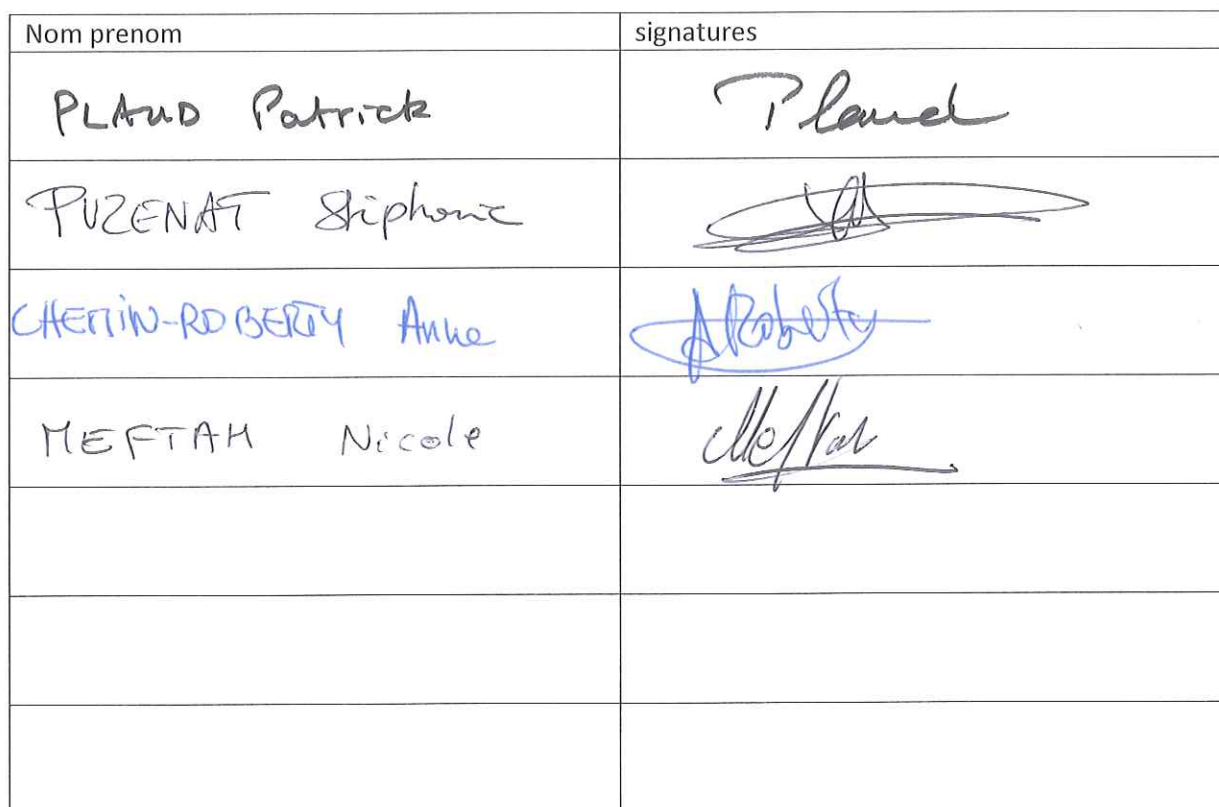 Nom prenom signatures
PLAUD Patrick Plaud
PUZENAT Stéphanie
CHEMIN-ROBERTY Anne ARoberty
MEFTAH Nicole Meftah